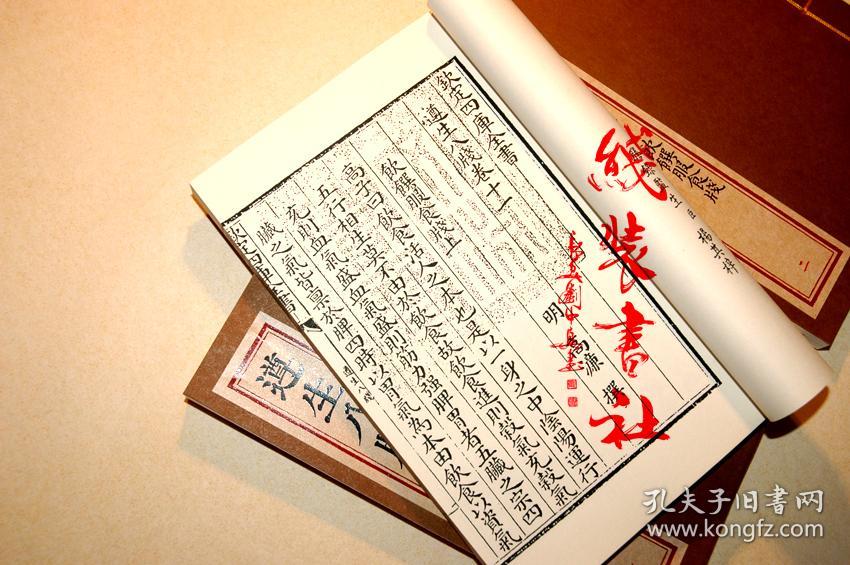 欽定四庫全書
遵生八牋卷十一
明 高濂 撰
飲饌服食牋上
高子曰飲食活人之本也是以一身之中陰陽運行
五行相生莫不由於飲食故飲食進則穀氣充穀氣
充則血氣盛血氣盛則筋力強脾胃者五臟之宗四
臟之氣皆稟於脾四時以胃氣為本由飲食以資氣
遵生八
綫装書社
飲饌服食牋
二
孔夫子旧书网
www.kongfz.com